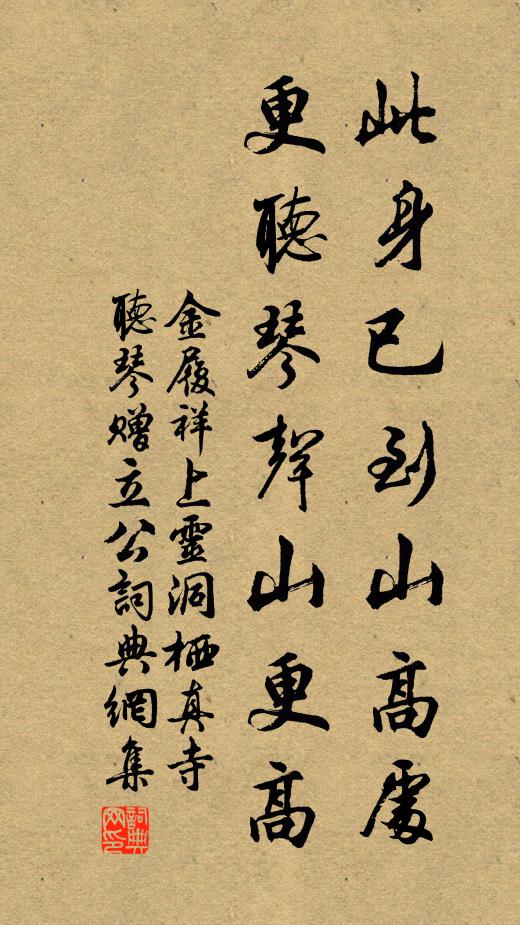 此身已到山高處
更聽琴聲山更高
金履祥上靈洞栖真寺
聽琴贈立公詞典網集
詞典网印